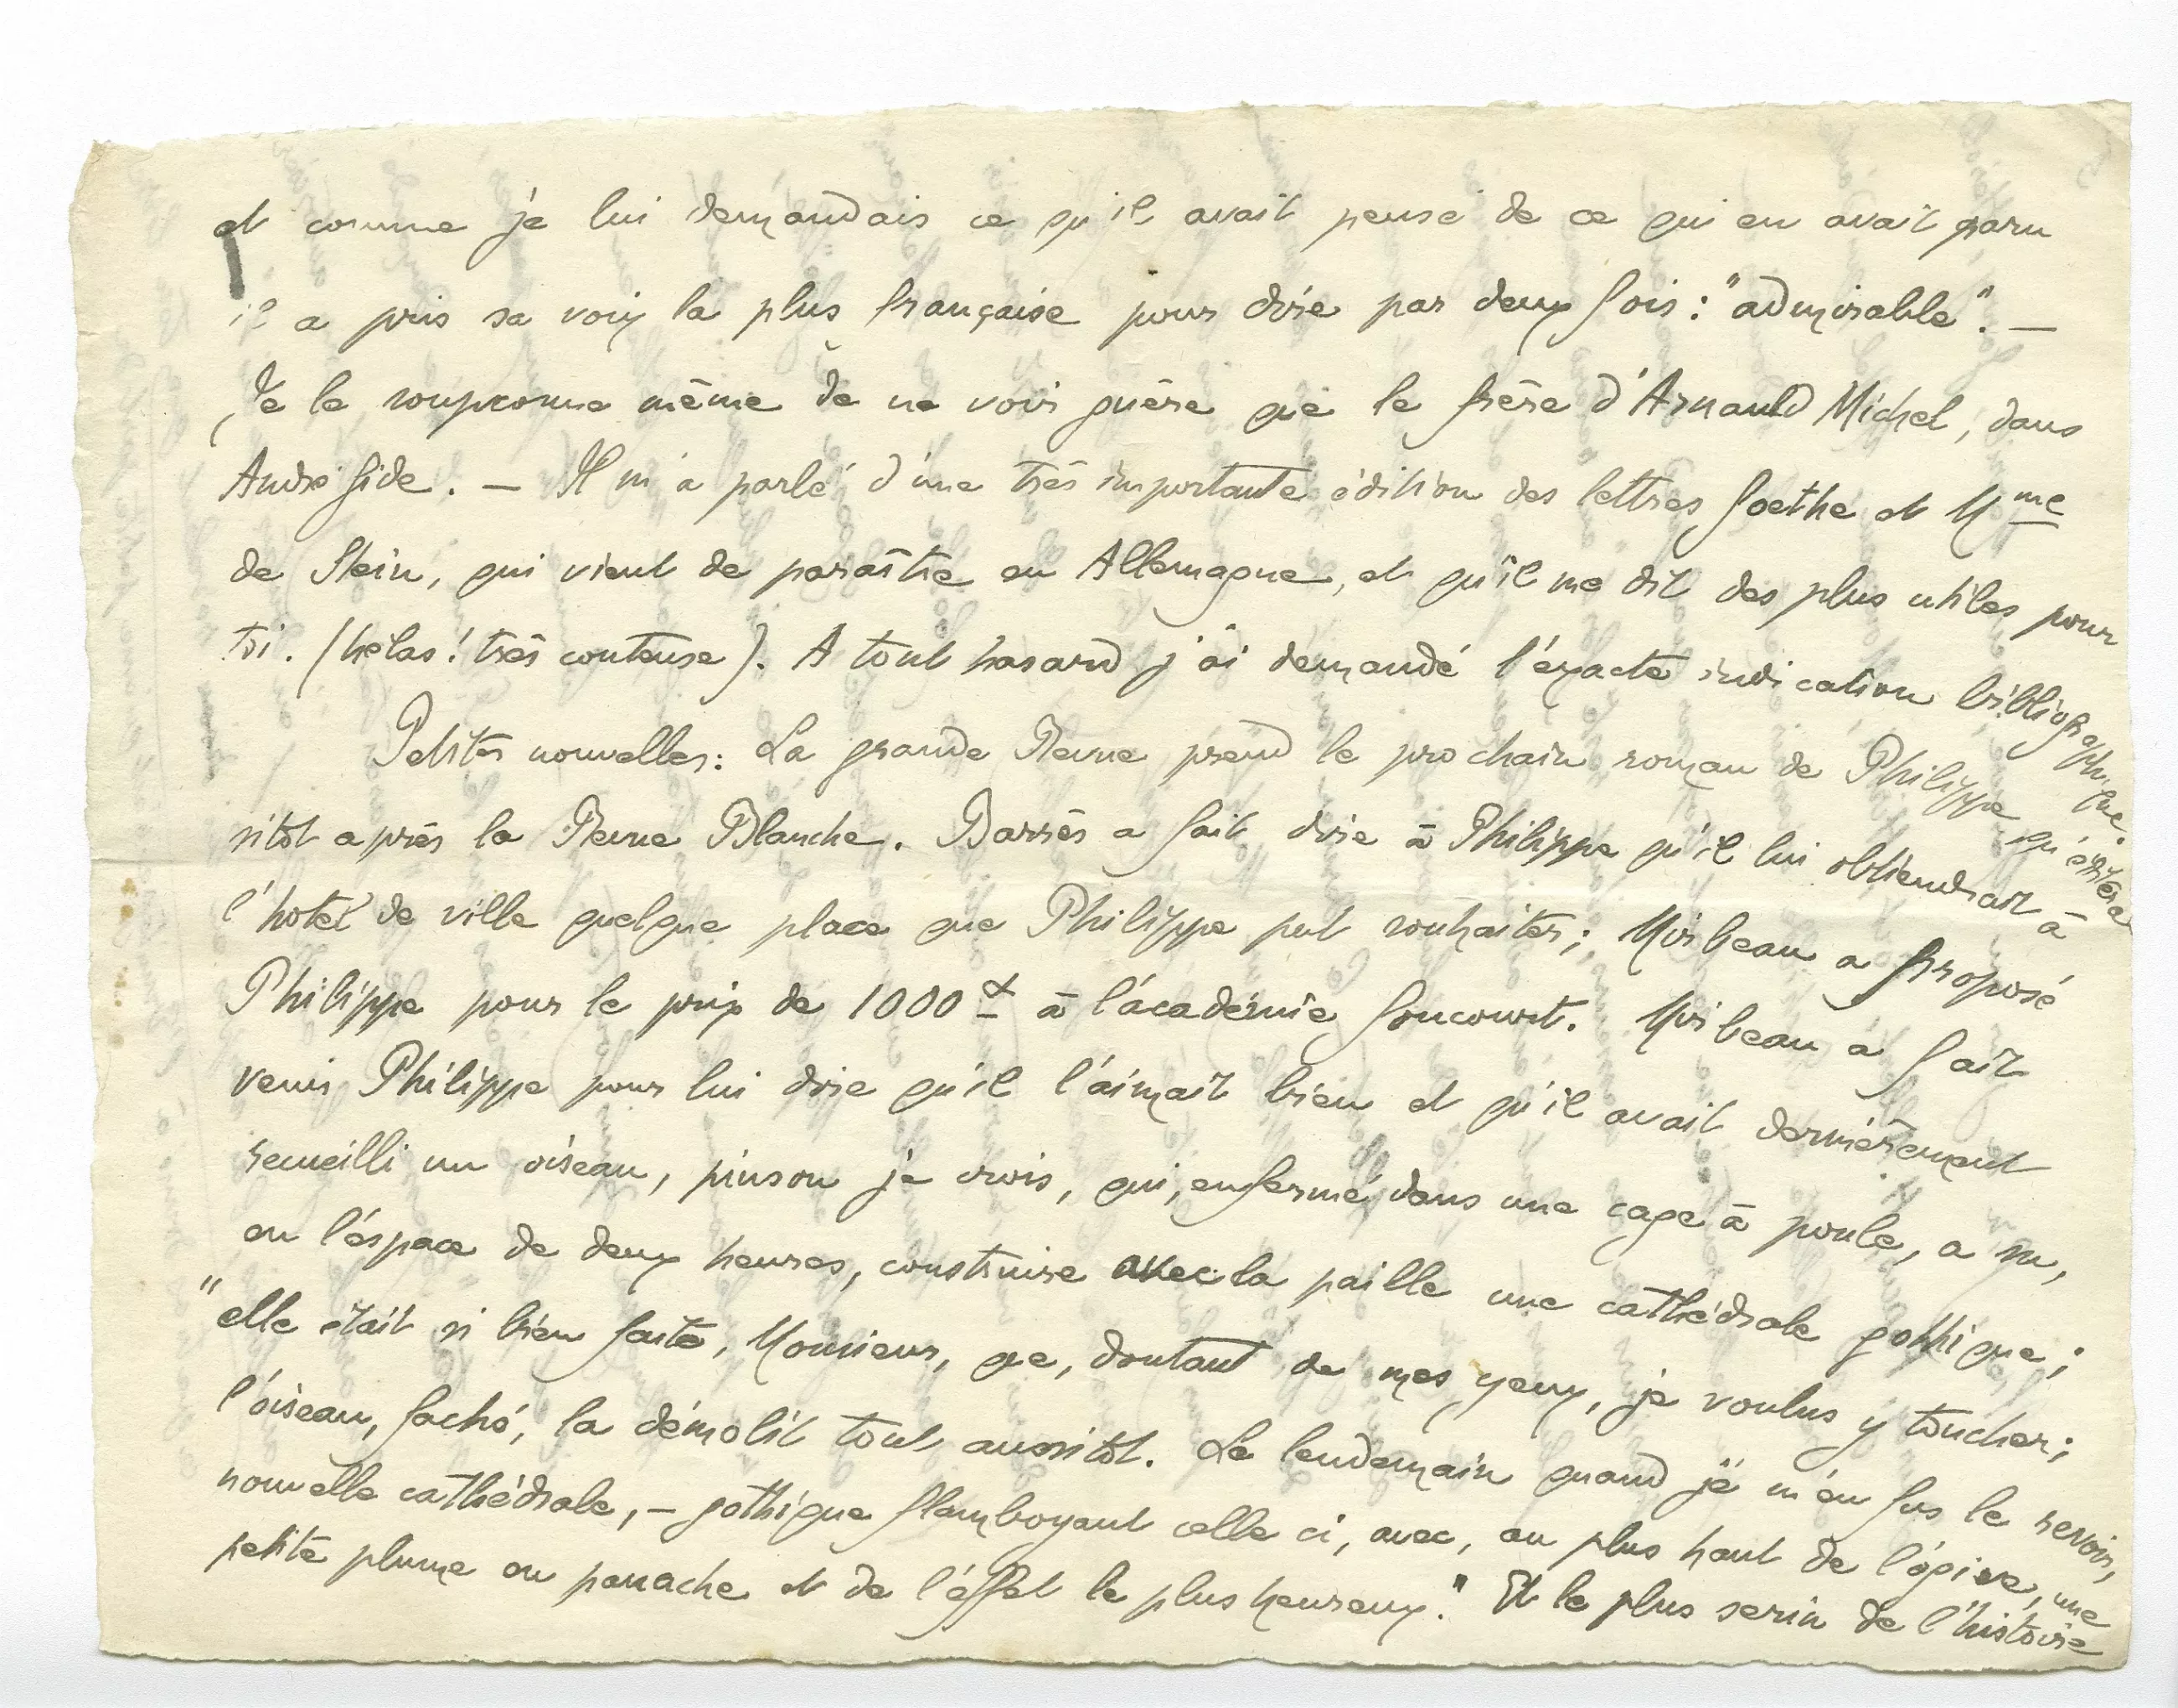 et comme je lui demandais ce qu'il avait pensé de ce qui en avait paru
il a pris sa voix la plus française pour dire par deux fois : "admirable". —
Je le soupconne même de ne voir guère que le frère d'Arnauld Michel, dans
André Gide. — Il m'a parlé d'une très importante édition des lettres Goethe et Mme
de Stein, qui vient de paraître en Allemagne, et qu'il me dit des plus utiles pour
toi. (hélas ! très couteuse). A tout hasard j'ai demandé l'exacte indication bibliographique.
Petites nouvelles : La grande Revue prend le prochain roman de Philippe qu'éditera
sitôt après la Revue Blanche. Barrès a fait dire à Philippe qu'il lui obtiendrait à
l'hotel de ville quelque place que Philippe put souhaiter ; Mirbeau a proposé
Philippe pour le prix de 1000 à l'académie Goncourt. Mirbeau a fait
venir Philippe pour lui dire qu'il l'aimait bien et qu'il avait dernièrement
recueilli un oiseau, pinson je crois, qui, enfermé dans une cage à poule, a su,
en l'espace de deux heures, construire avec la paille une cathédrale gothique ;
"elle était si bien faite, Monsieur, que, doutant de mes yeux, je voulus y toucher ;
l'oiseau, faché, la démolit tout aussitôt. Le lendemain quand je m'en fus le revoir,
nouvelle cathédrale, — gothique flamboyant celle ci, avec, au plus haut de l'ogive, une
petite plume en panache et de l'effet le plus heureux." Et le plus serin de l'histoire